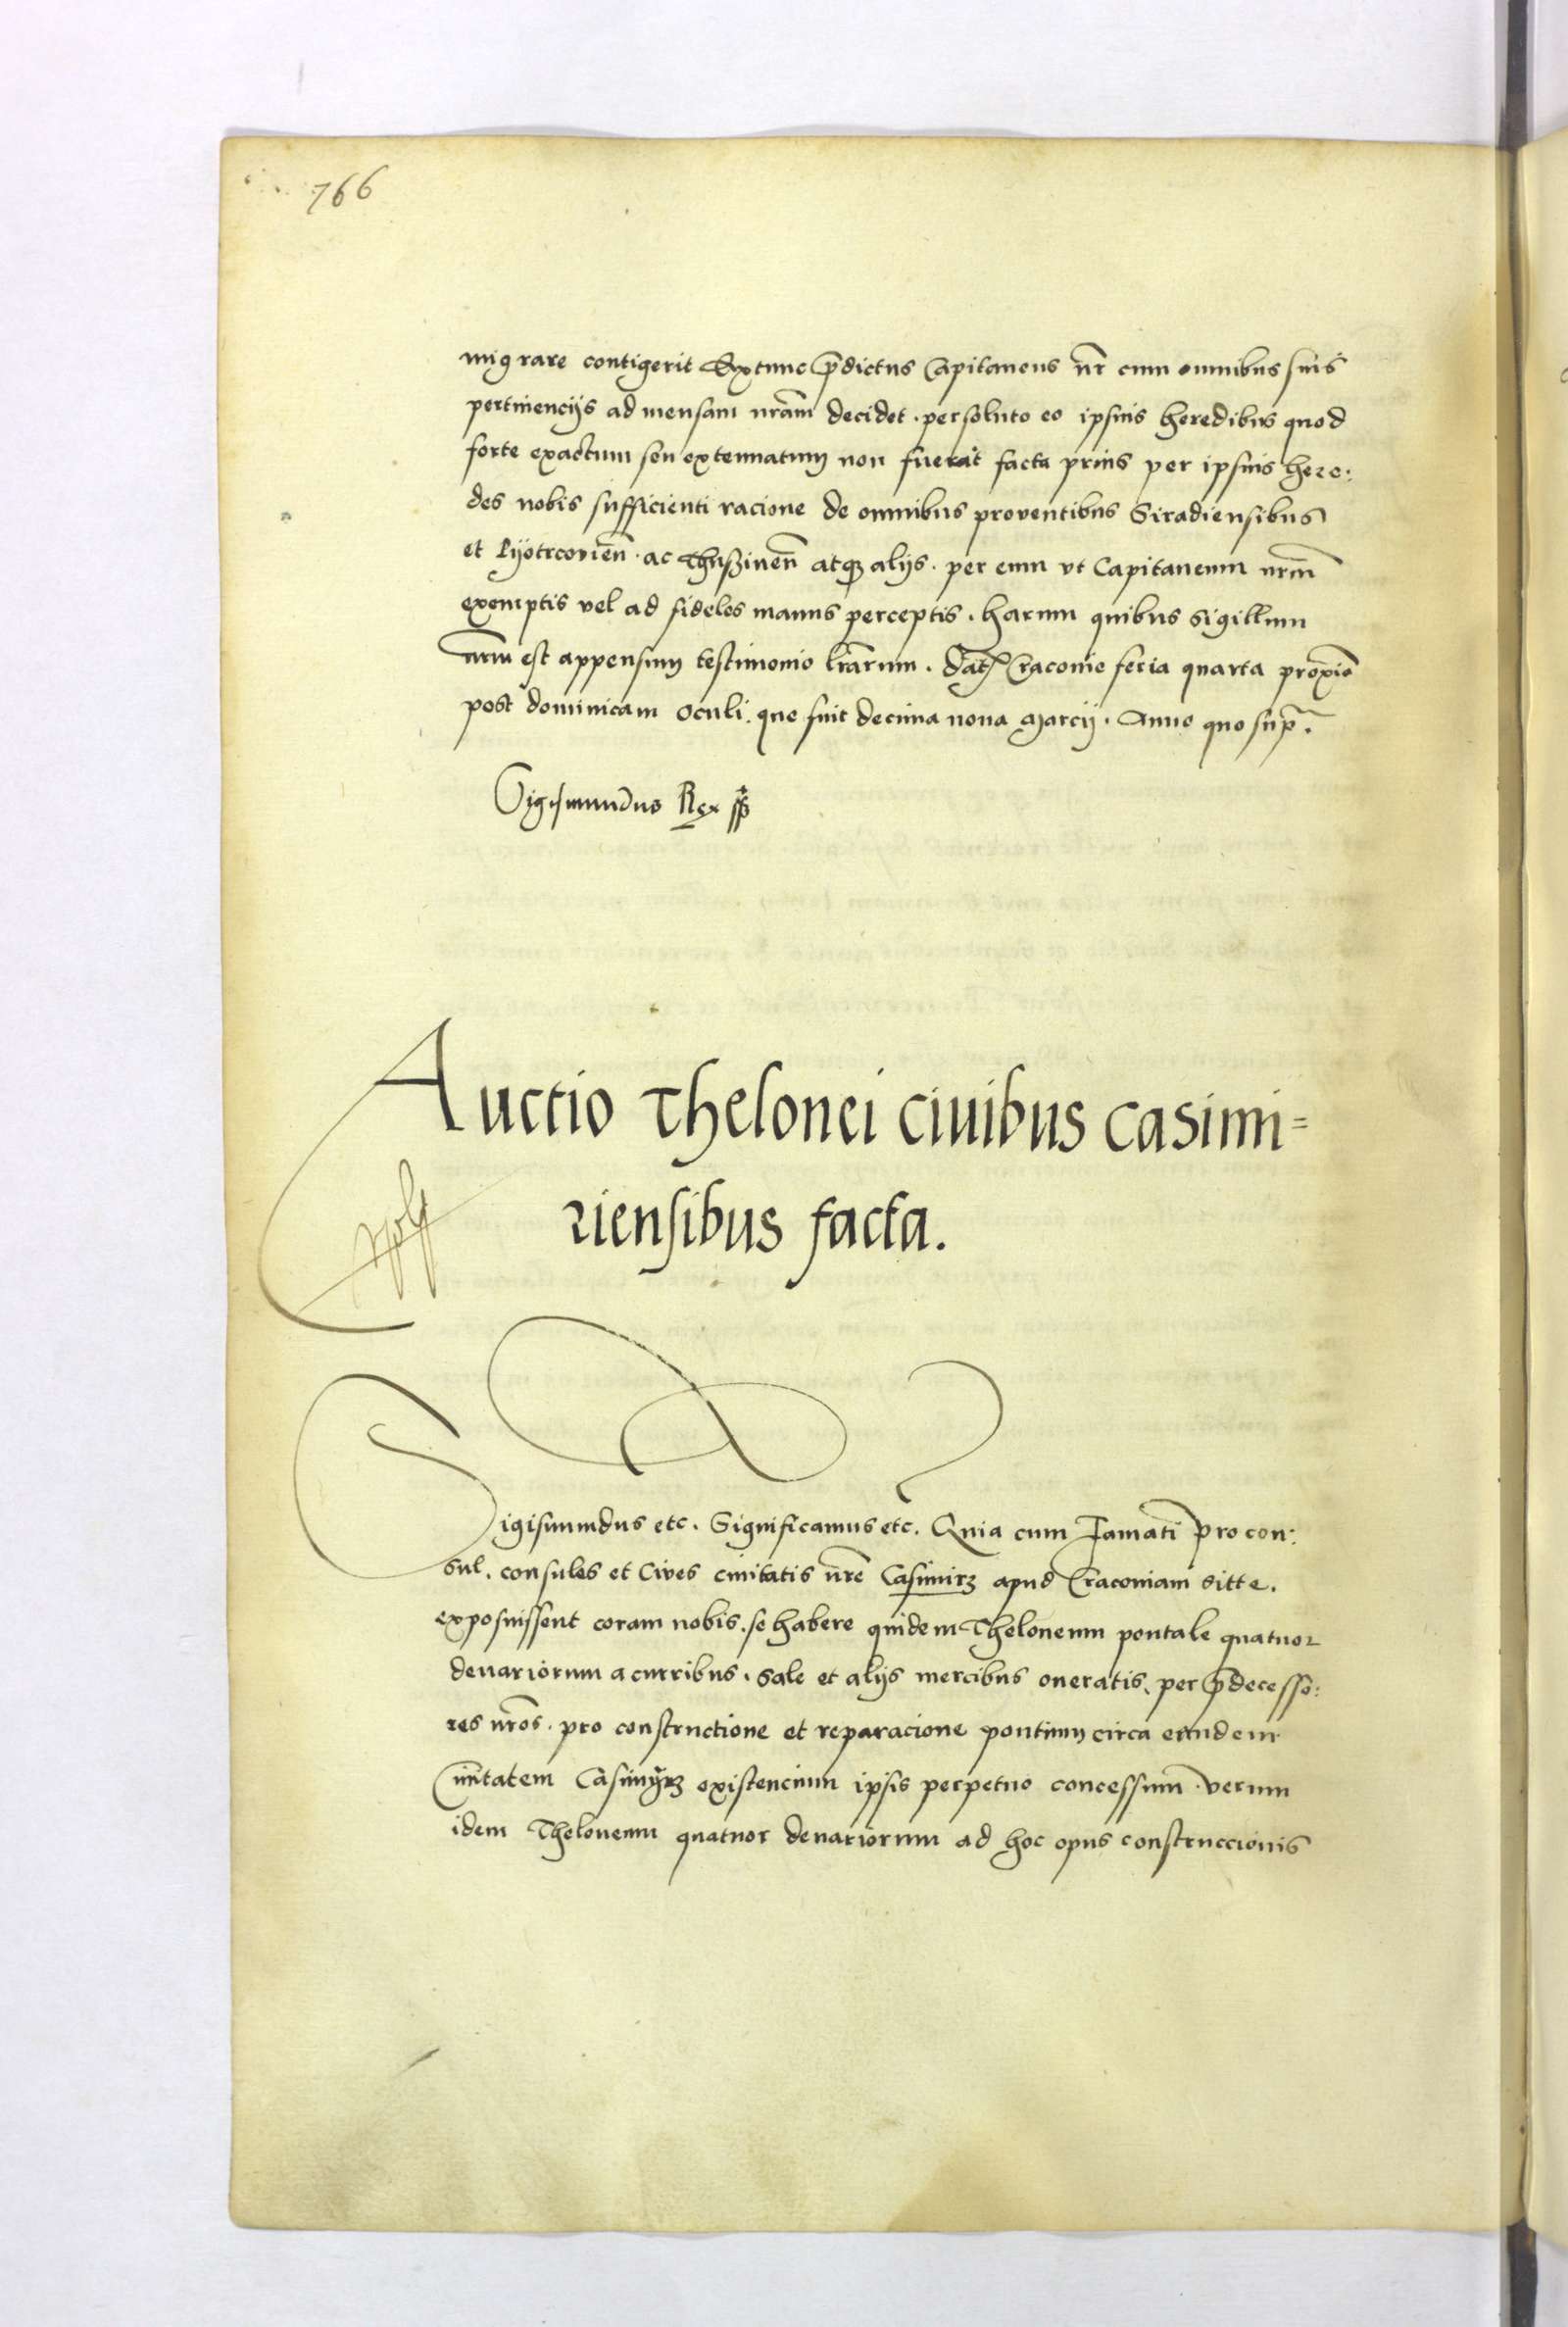 766
migrare contigerit Extunc p̄dictus Capitaneus nr̄ cum omnibus suis
pertinencijs ad mensam nrām decidet . persoluto eo ipsius heredibus quod
forte exactum seu extenuatum non fuerat facta prius per ipsius here:
des nobis sufficienti racione de omnibus proventibus Siradiensibus
et Pyotrcovien̄ . ac Thuszinen̄ atq3 alijs . per eum vt Capitaneum nrm̄
exemptis vel ad fideles manus perceptis . harum quibus sigillum
nrm̄ est appensum testimonio lrārum . Dat̄ Cracovie feria quarta proxiē
post dominicam Oculi . que fuit decima nona Marcij . Anno quo sup̄ .
Sigismundus Rex sspt
Auctio Thelonei civibus casimi=
riensibus facta.
Sigismundus etc . Significamus etc . Quia cum Famati procon:
sul . consules et Cives civitatis nrē Casimirz apud Cracoviam sitte .
exposuissent coram nobis . se habere quidem Theloneum pontale quatuor
denariorum a curribus . Sale et alijs mercibus oneratis . per p̄decesso:
res nrōs . pro constructione et reparacione pontium circa eandem
Civitatem Casimÿrz existencium ipsis perpetuo concessum . verum
idem Theloneum quatuor denariorum ad hoc opus construccionis